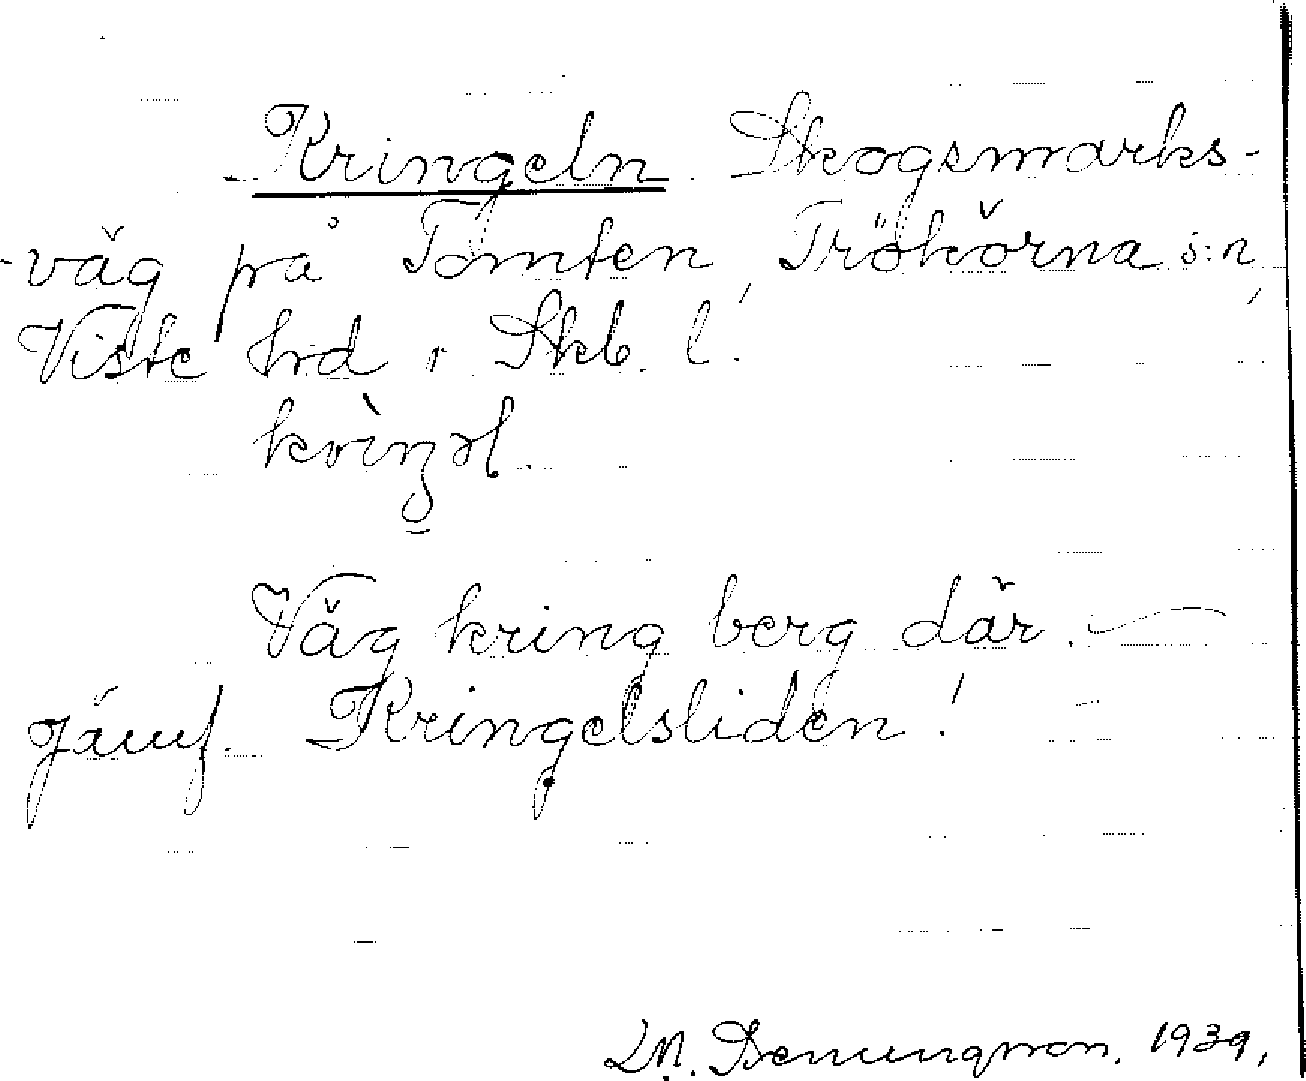 Kringeln. Skogsmarks-
-väg på Tomten, Trökörna s:n,
Viste hrd i Skb. l.
Väg kring berg där. —
Jämf. Kringelsliden!
1939.